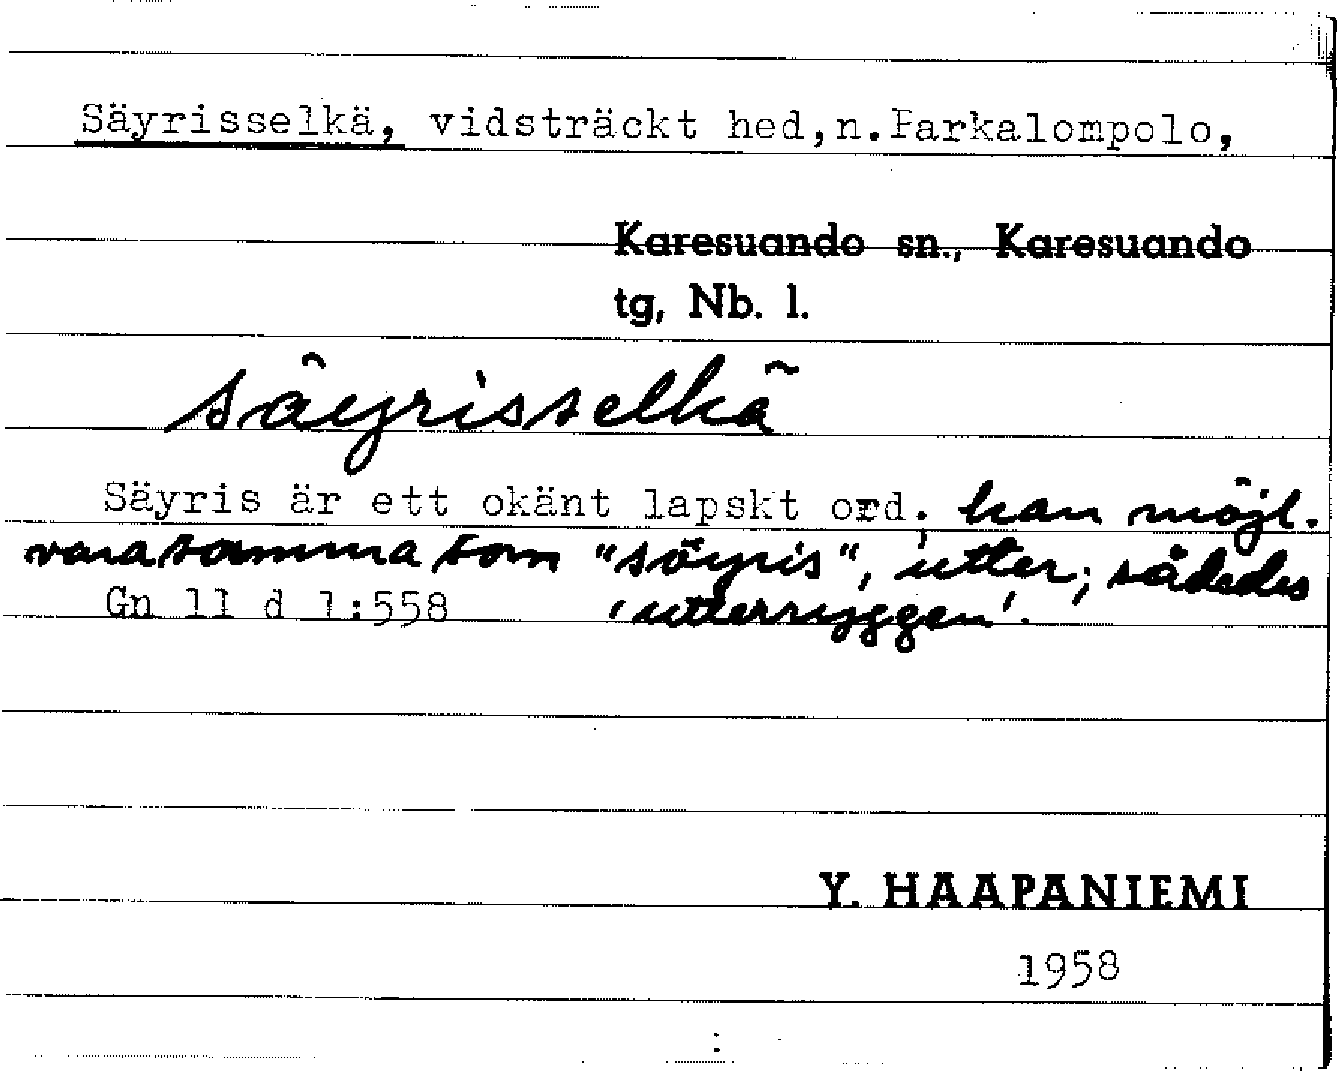 Säyrisselkä, vidsträckt hed,n.Parkalompolo,
Karesuando sn., Karesuando
tg, Nb. l.
säyrisselkä
Säyris är ett okänt lapskt ord. kan möjl.
vara samma som "söyris", utter; således
Gn 11 d 1:558 'utterryggen'.
Y. HAAPANIEMI
1958